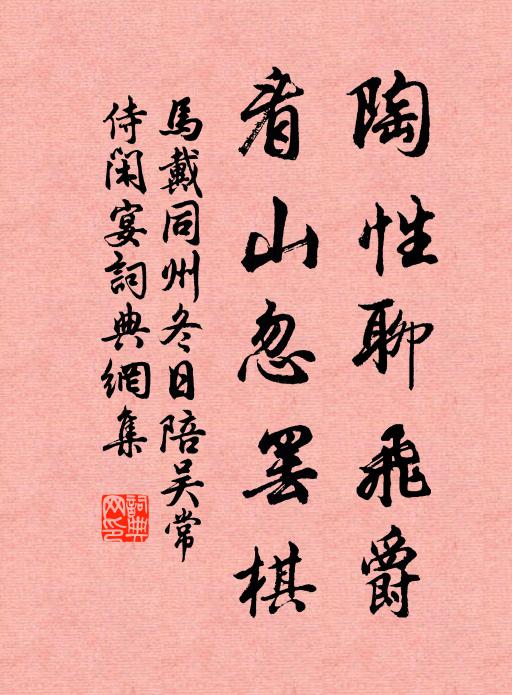 陶性聊飛爵
看山忽罷棋
馬戴同州冬日陪吴常
侍閑宴詞典網集
詞典
网印